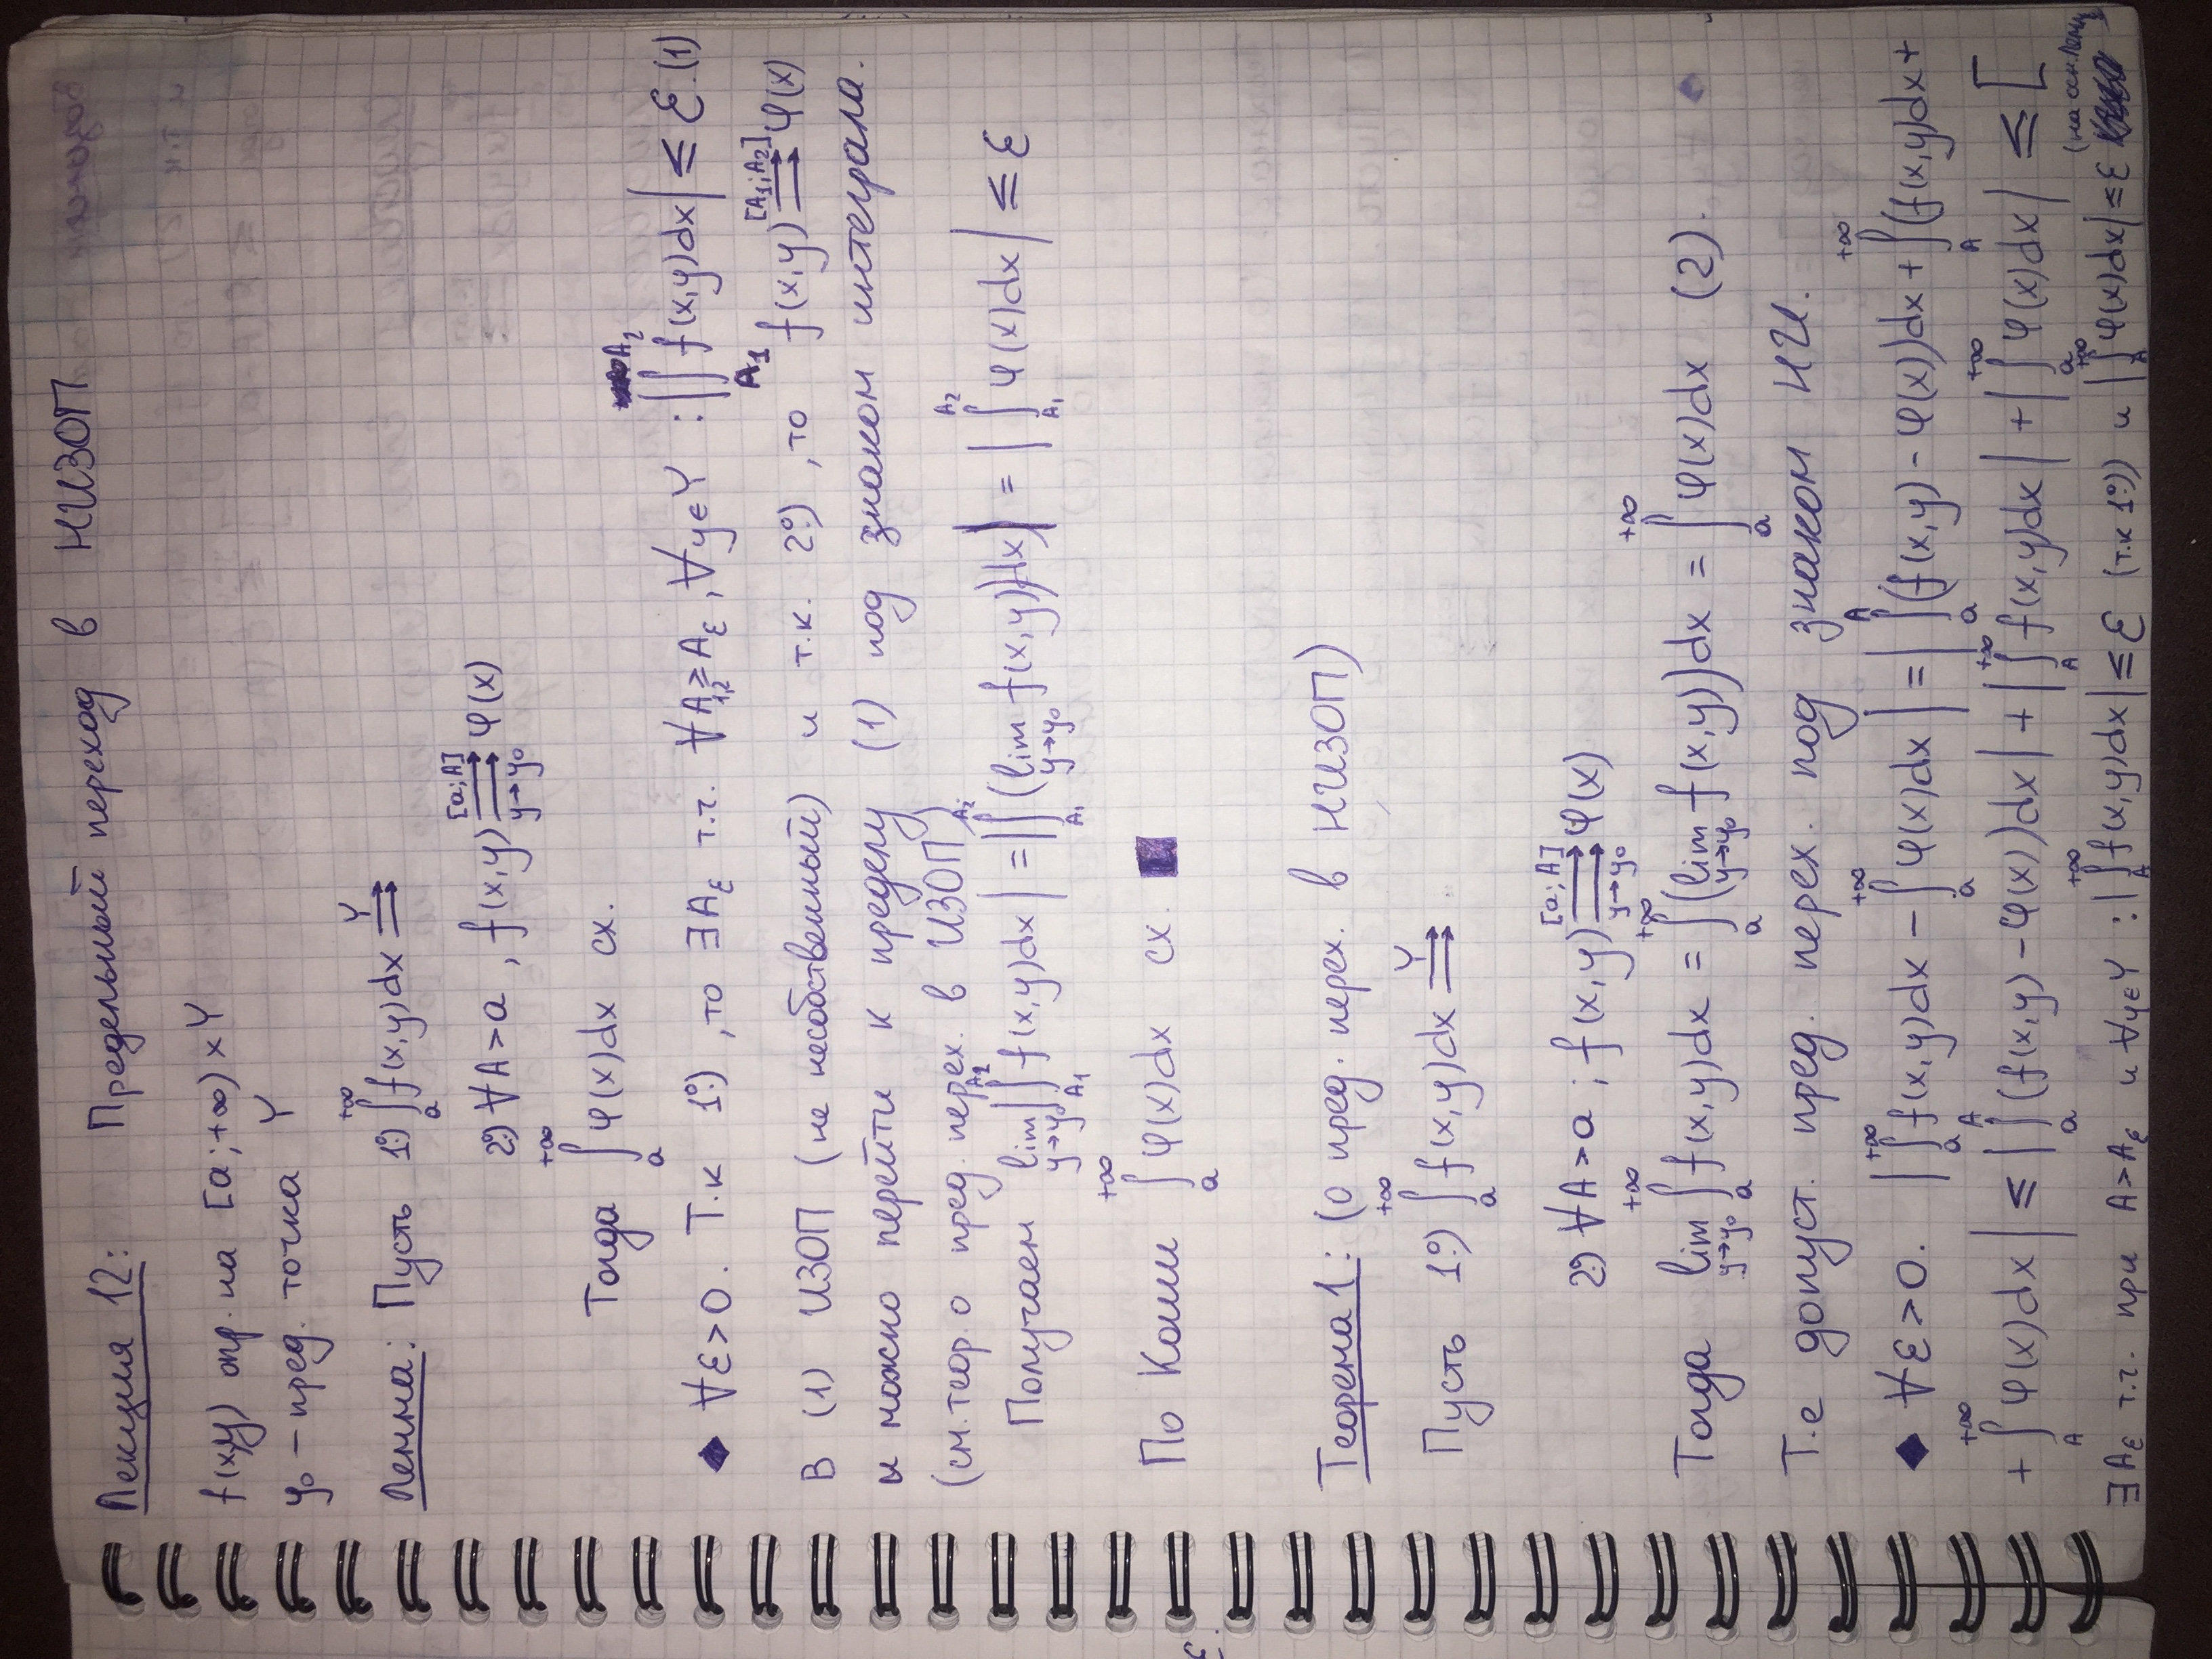 Лекция 12: Предельный переход в НИЗОП
f(x,y) опр. на [a;+∞)×Y
y₀ – пред. точка Y
Лемма: Пусть 1°.) ∫ₐ^{+∞} f(x,y)dx ⇉^Y
2°.) ∀A>a , f(x,y) ⇉^{[a;A]}_{y→y₀} φ(x)
Тогда ∫ₐ^{+∞} φ(x)dx сх.
◆ ∀ε>0. Т.к 1°.) , то ∃A_ε т.ч. ∀A_{1,2}≥A_ε , ∀y∈Y : |∫_{A₁}^{A₂} f(x,y)dx| ≤ ε. (1)
В (1) ИЗОП (не несобственный) и т.к. 2°.) , то f(x,y) ⇉^{[A₁;A₂]} φ(x)
и можно перейти к пределу (1) под знаком интеграла.
(см. теор. о пред. перех. в ИЗОП).
Получаем lim_{y→y₀} |∫_{A₁}^{A₂} f(x,y)dx| = |∫_{A₁}^{A₂} (lim_{y→y₀} f(x,y))dx| = |∫_{A₁}^{A₂} φ(x)dx| ≤ ε
По Коши ∫ₐ^{+∞} φ(x)dx сх. ■
Теорема 1: (о пред. перех. в НИЗОП)
Пусть 1°.) ∫ₐ^{+∞} f(x,y)dx ⇉^Y
2°.) ∀A>a ; f(x,y) ⇉^{[a;A]}_{y→y₀} φ(x)
Тогда lim_{y→y₀} ∫ₐ^{+∞} f(x,y)dx = ∫ₐ^{+∞} (lim_{y→y₀} f(x,y))dx = ∫ₐ^{+∞} φ(x)dx (2).
Т.е допуст. пред. перех. под знаком НИ.
◆ ∀ε>0. |∫ₐ^{+∞} f(x,y)dx – ∫ₐ^{+∞} φ(x)dx| = |∫ₐ^A (f(x,y) - φ(x))dx + ∫_A^{+∞} (f(x,y)dx +
+ ∫_A^{+∞} φ(x)dx| ≤ |∫ₐ^A (f(x,y) – φ(x))dx| + |∫_A^{+∞} f(x,y)dx| + |∫ₐ^{+∞} φ(x)dx| ≤ [
∃A_ε т.ч. при A>A_ε и ∀y∈Y : |∫_A^{+∞} f(x,y)dx| ≤ ε (т.к 1°.)) и |∫_A^{+∞} φ(x)dx| ≤ ε (на осн. Леммы